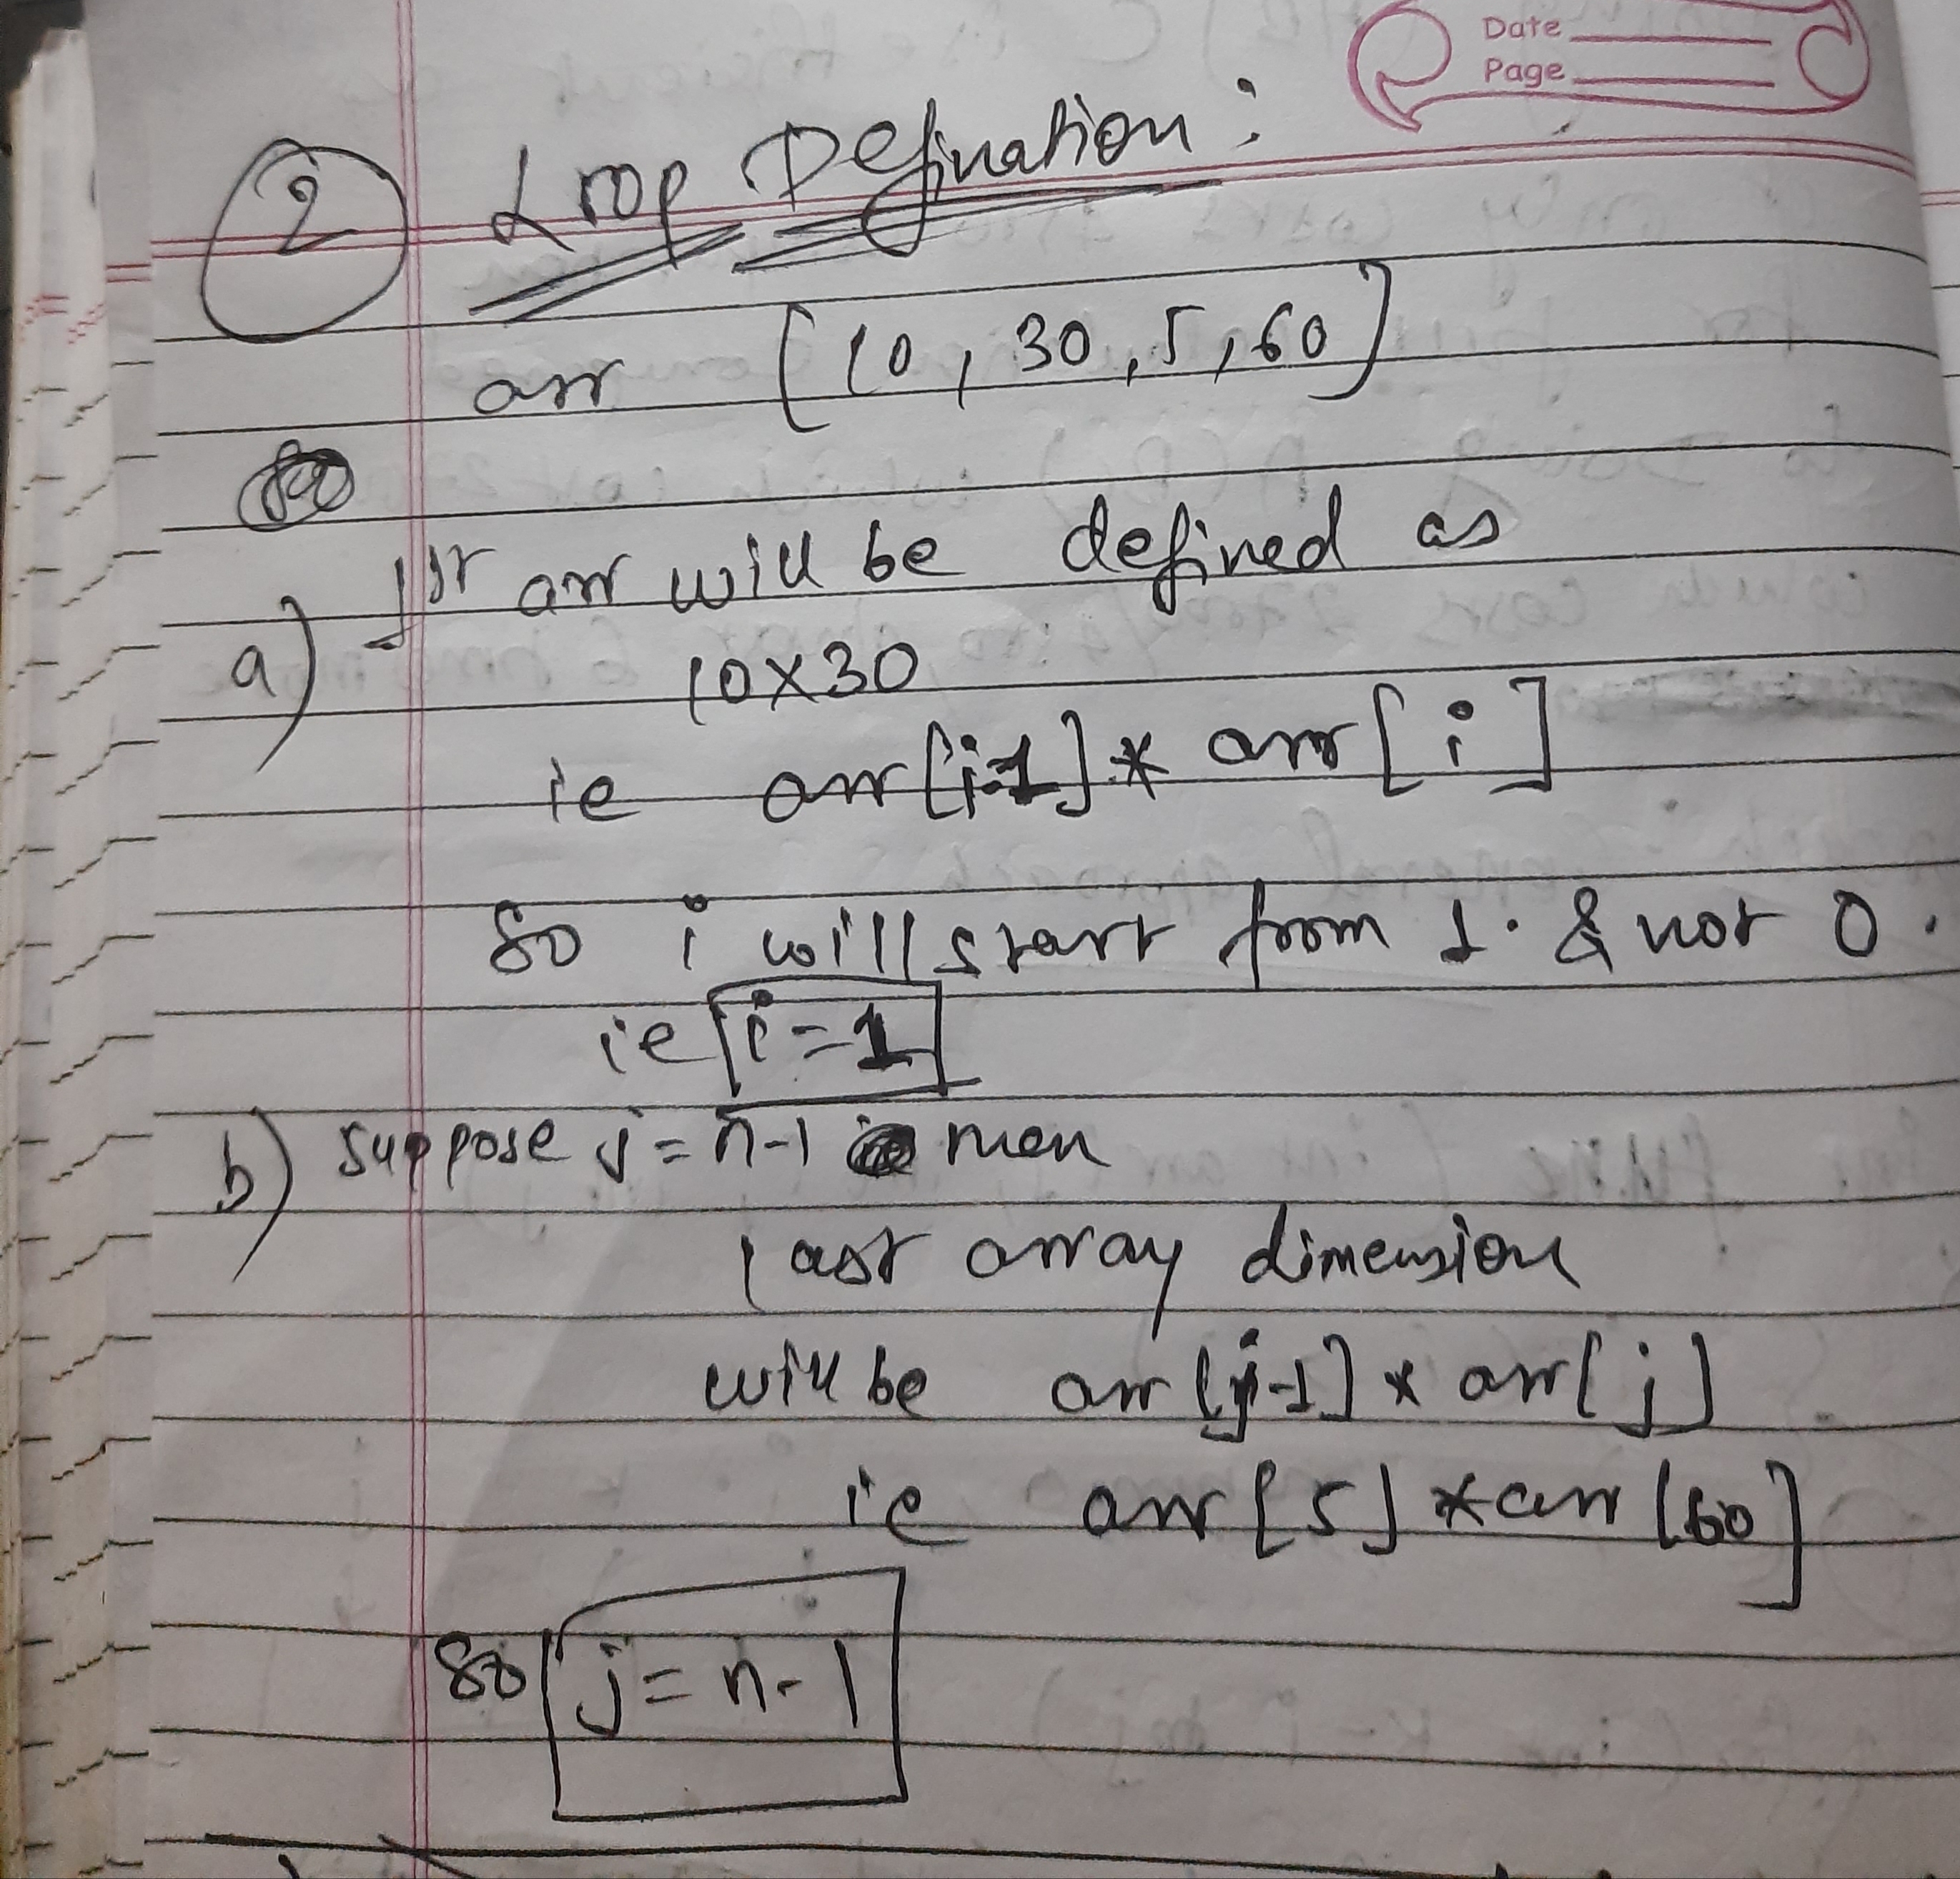 Date
Page
2 Loop Defination :
arr [10, 30, 5, 60]
a) 1st arr will be defined as
10X30
ie arr[i-1] * arr[i]
So i will start from 1. & not 0.
ie i=1
b) suppose j = n-1 then
last array dimension
will be arr[j-1] * arr[j]
ie arr[5] * arr[60]
So j = n-1